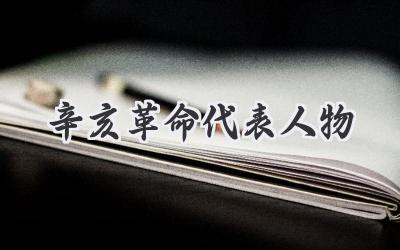 辛亥革命代表人物